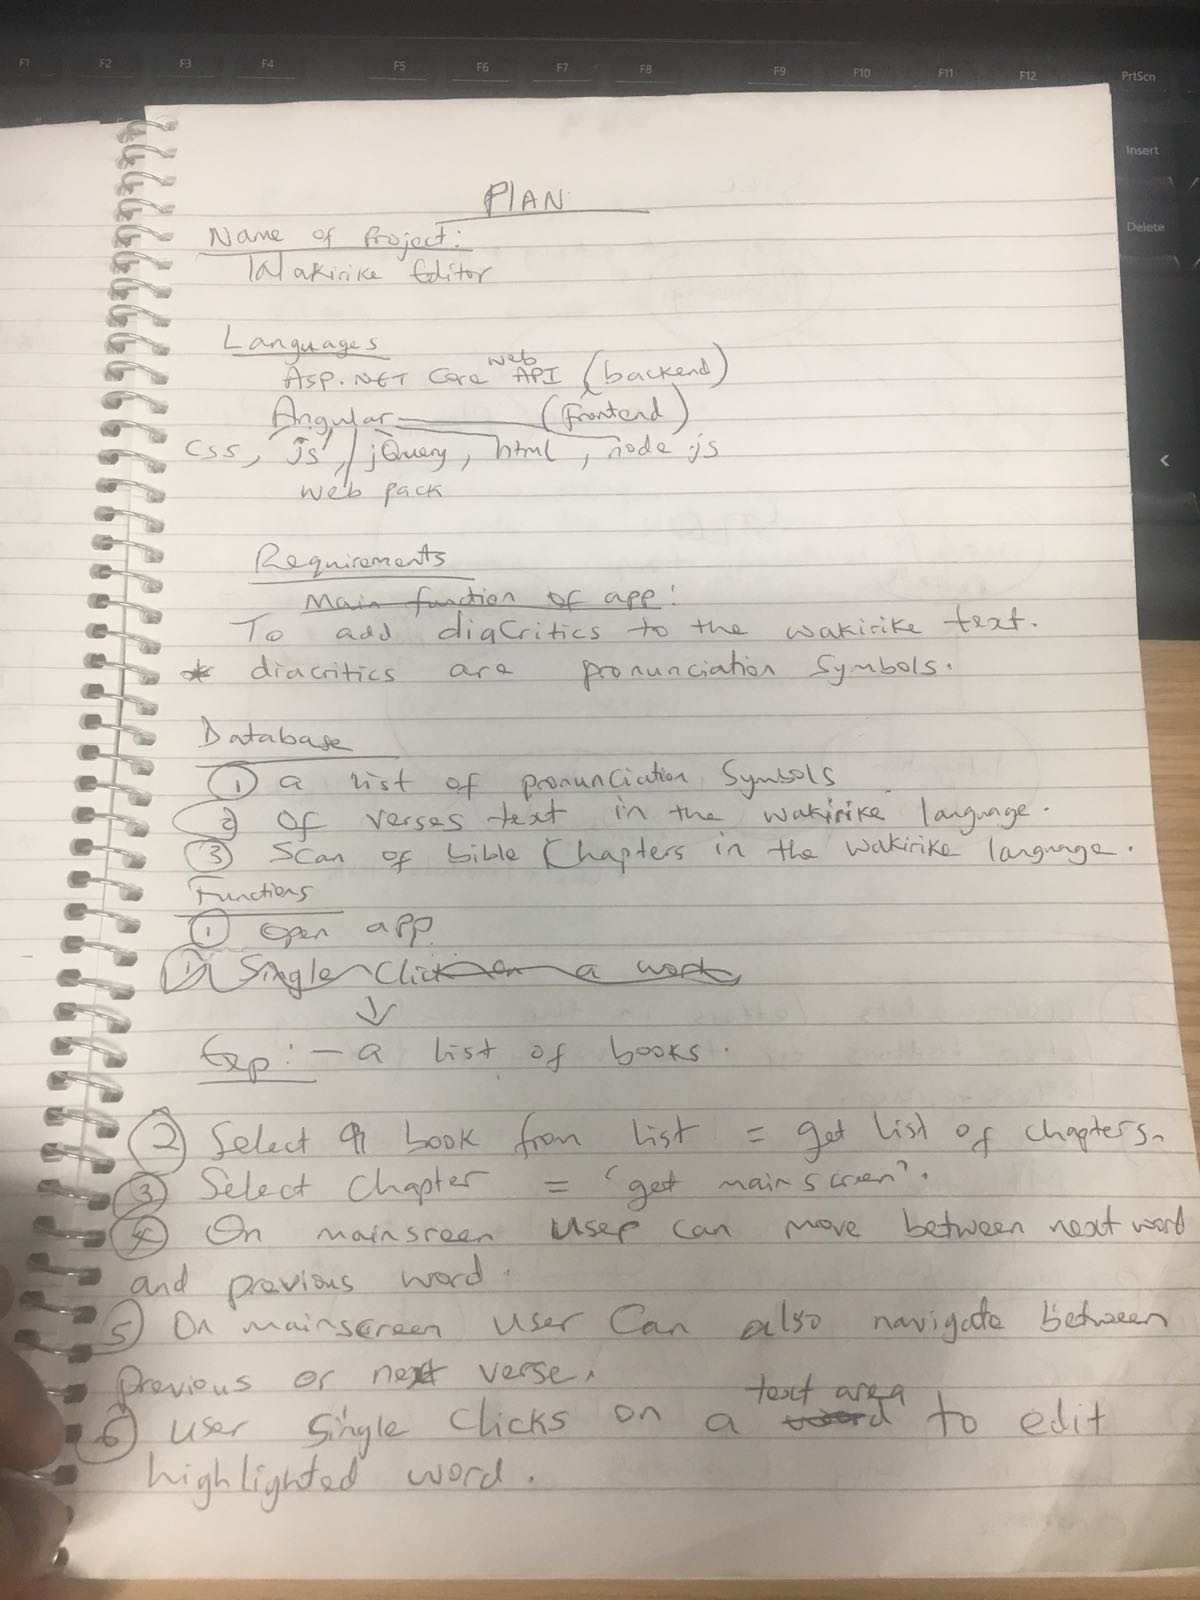 F1 F2 F3 F4 F5 F6 F7 F8 F9 F10 F11 F12 PrtScn
Insert
Delete
PLAN
Name of Project:
Wakirike Editor
Languages
Asp.NET Core web API (backend)
Angular (frontend)
Css, js, jQuery, html, node.js
web pack
Requirements
Main function of app:
To add diaCritics to the wakirike text.
* diacritics are pronunciation Symbols.
Database
① a list of pronunciation Symbols
② Of verses text in the wakirike language.
③ Scan of bible Chapters in the wakirike language.
Functions
① Open app
① Single Click on a word
↓
Exp: - a list of books.
② Select a book from list = get list of chapters.
③ Select Chapter = 'get mainscreen'.
④ On mainsreen user can move between next word
and previous word.
⑤ On mainscreen user Can also navigate between
previous or next verse.
text area
⑥ User Single Clicks on a word to edit
highlighted word.